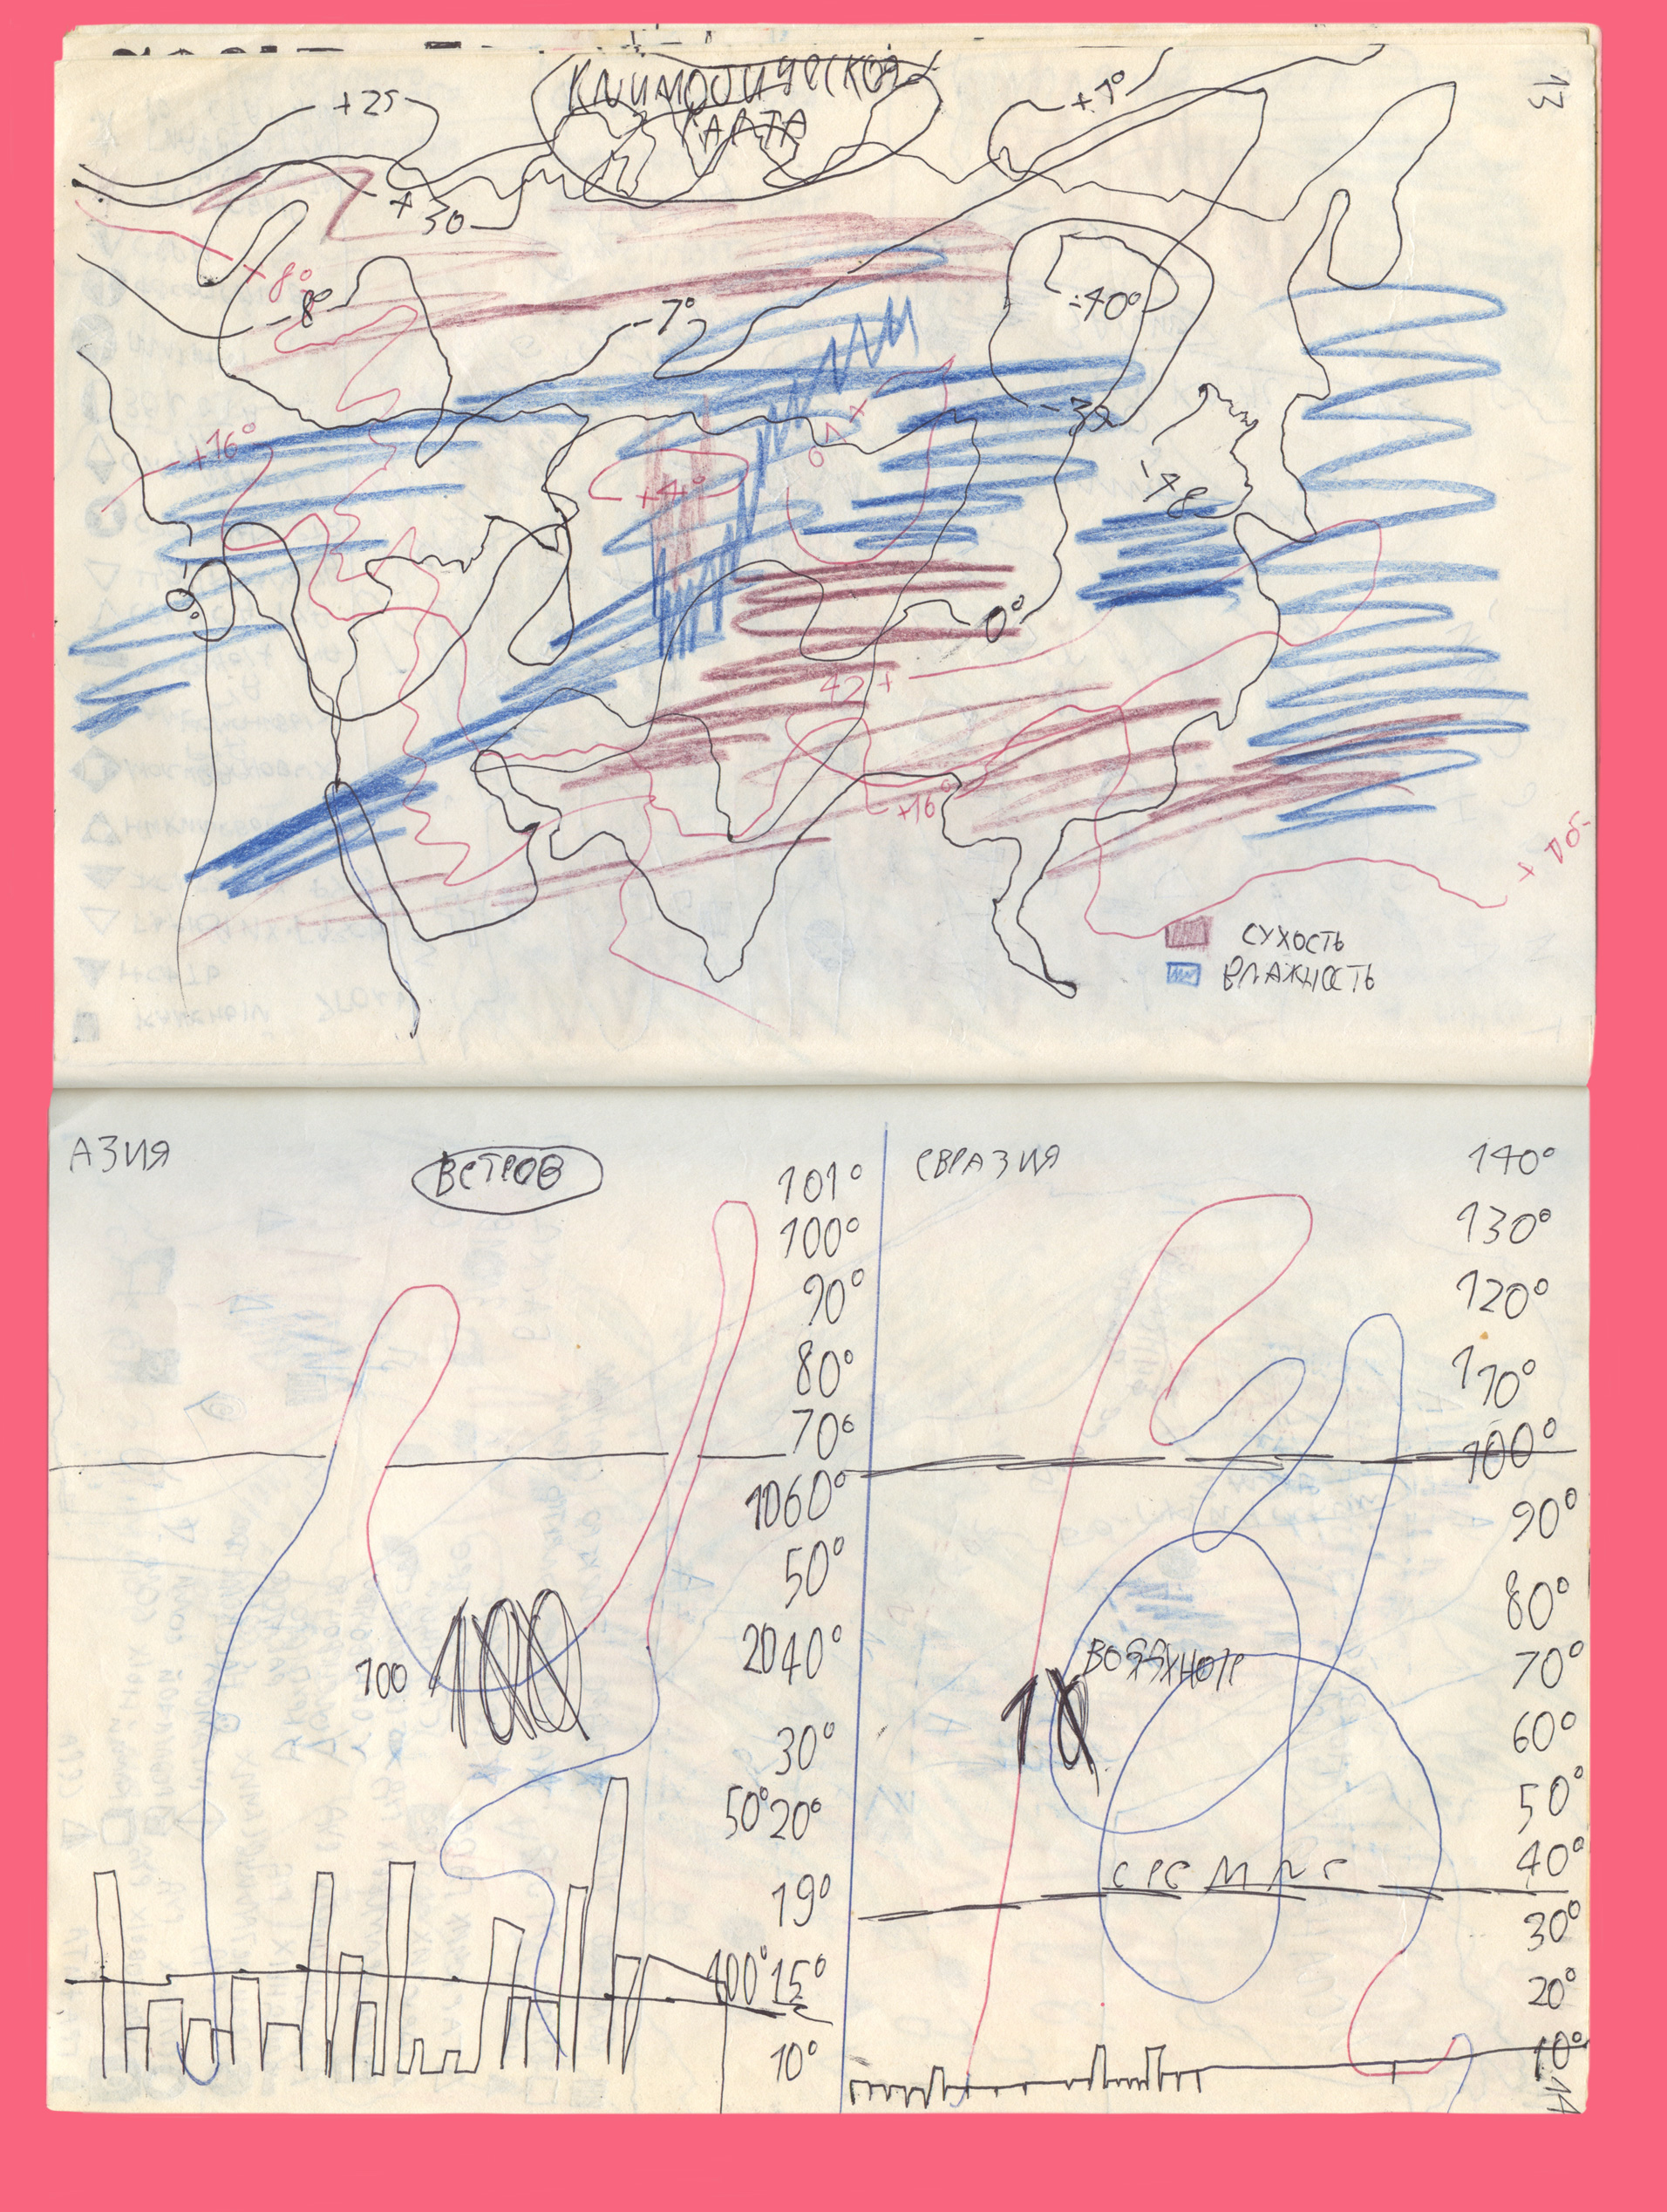 КЛИМАТИЧЕСКАЯ
КАРТА
13
+25
+1°
+30
+8°
-8°
-7°
-40°
-32
+16°
+4°
-48
0°
0°
42+
+16°
СУХОСТЬ
ВЛАЖНОСТЬ
АЗИЯ
ВЕТРОВ
101°
100°
90°
80°
70°
1060°
50°
2040°
30°
50°20°
19°
100°15°
10°
100
100
ЕВРАЗИЯ
140°
130°
120°
110°
100°
90°
80°
70°
60°
50°
40°
30°
20°
10°
14